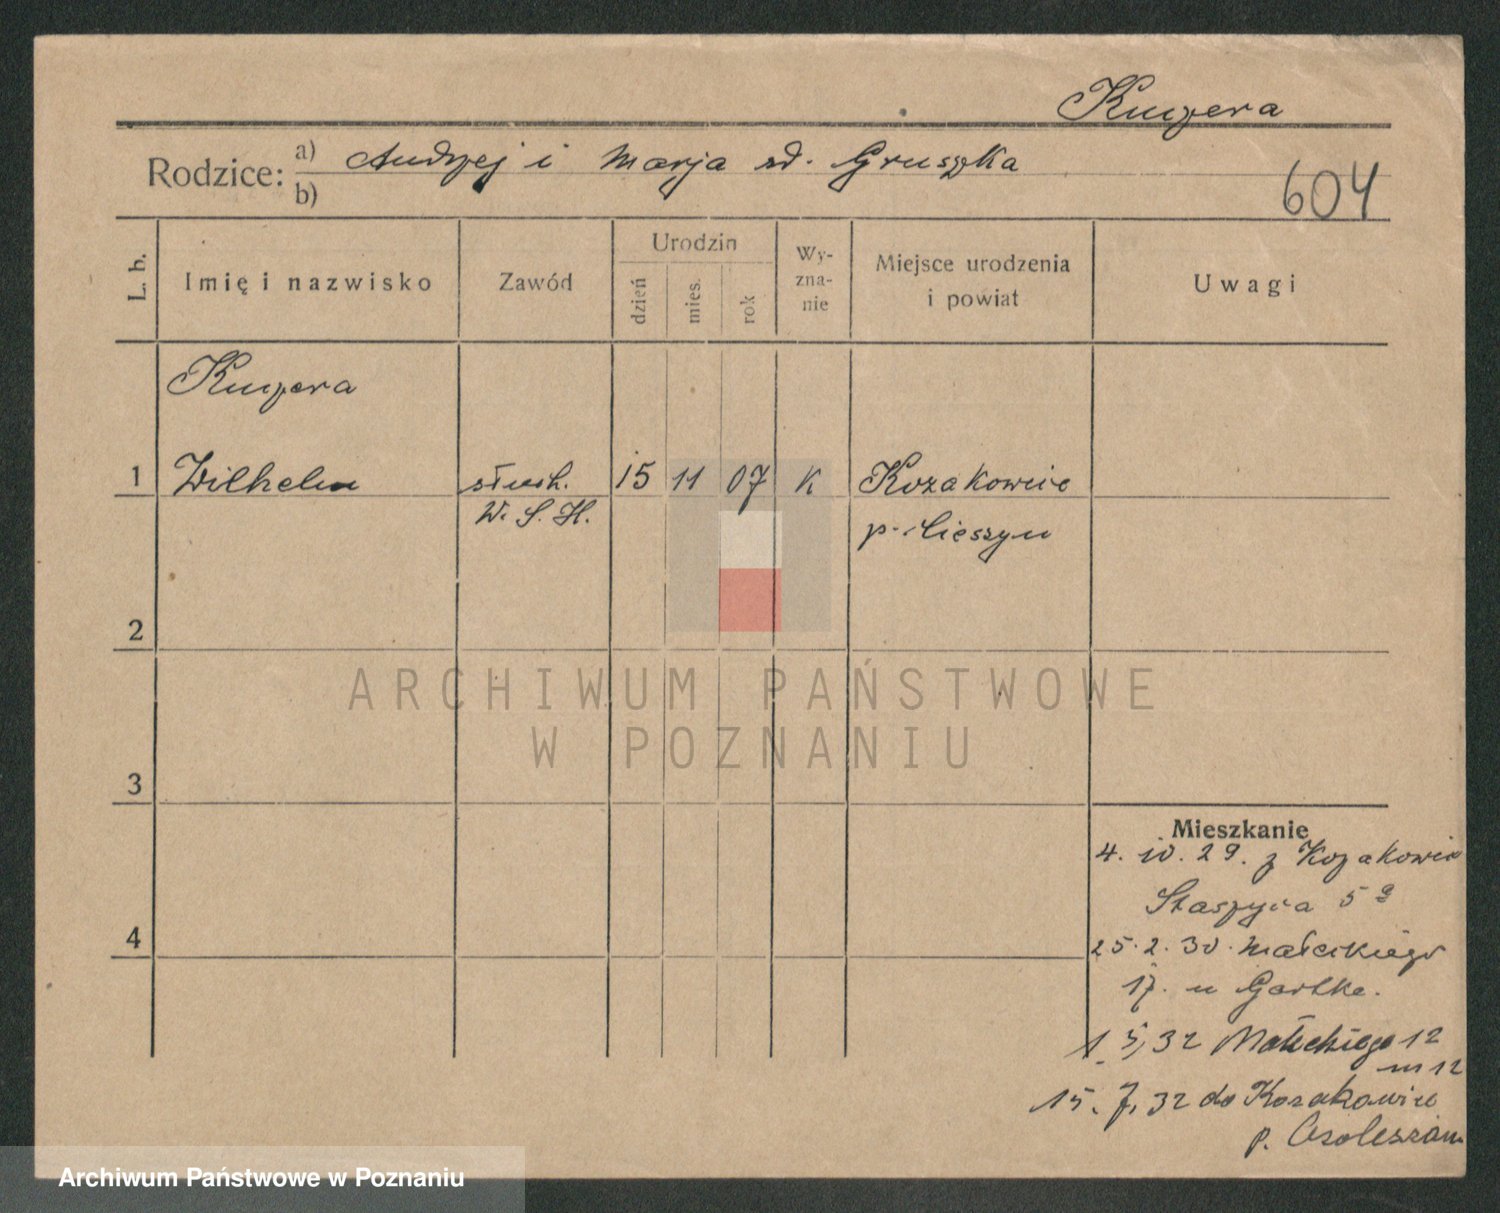 Kupera
Rodzice: a) Andrzej i Marja zd. Gruszka
b)
604
L. b.
Imię i nazwisko
Zawód
Urodzin
dzień
mies.
rok
Wy-
zna-
nie
Miejsce urodzenia
i powiat
Uwagi
1
Wilhelm
słuch.
W. S. H.
15 11 07
K
Kozakowice
p. Cieszyn
2
3
4
ARCHIWUM PAŃSTWOWE
W POZNANIU
Mieszkanie
4. 10. 29. z Kozakowic
Staszyca 5
25. 2. 30. Małeckiego
17. u
1. 5, 32 Małeckiego 12
m 12
15. 7, 32 do Kozakowic
p.
Archiwum Państwowe w Poznaniu